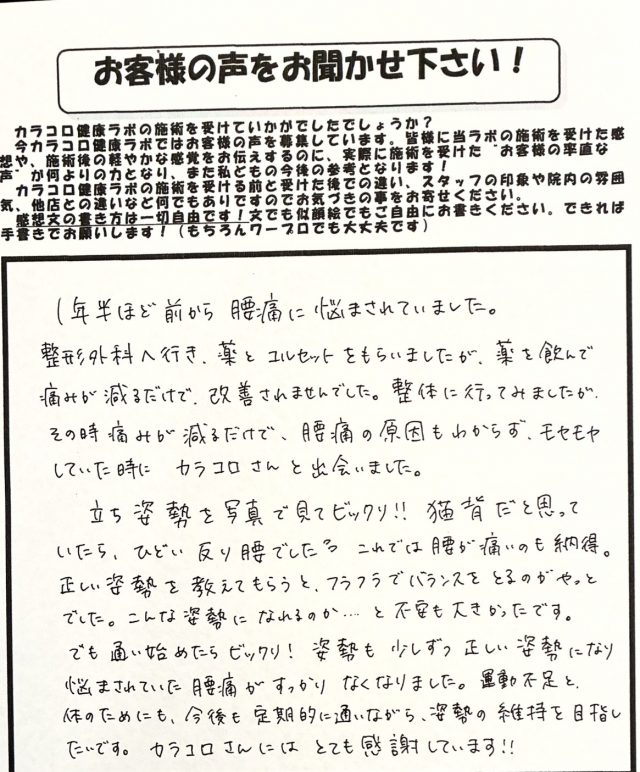 お客様の声をお聞かせ下さい！
カラコロ健康ラボの施術を受けていかがでしたでしょうか？
今カラコロ健康ラボではお客様の声を募集しています。皆様に当ラボの施術を受けた感
想や、施術後の軽やかな感覚をお伝えするのに、実際に施術を受けた“お客様の率直な
声”が何よりの力となり、また私どもの今後の参考となります！
カラコロ健康ラボの施術を受ける前と受けた後での違い、スタッフの印象や院内の雰囲
気、他店との違いなど何でもありですのでお気づきの事をお寄せください。
感想文の書き方は一切自由です！文でも似顔絵でもご自由にお書きください。できれば
手書きでお願いします！（もちろんワープロでも大丈夫です）
1年半ほど前から腰痛に悩まされていました。
整形外科へ行き、薬とコルセットをもらいましたが、薬を飲んで
痛みが減るだけで、改善されませんでした。整体に行ってみましたが、
その時痛みが減るだけで、腰痛の原因もわからず、モヤモヤ
していた時にカラコロさんと出会いました。
立ち姿勢を写真で見てビックリ!!猫背だと思って
いたら、ひどい反り腰でした。これでは腰が痛いのも納得。
正しい姿勢を教えてもらうと、フラフラでバランスをとるのがやっと
でした。こんな姿勢になれるのか…と不安も大きかったです。
でも通い始めたらビックリ！姿勢も少しずつ正しい姿勢になり
悩まされていた腰痛がすっかりなくなりました。運動不足と、
体のためにも、今後も定期的に通いながら、姿勢の維持を目指し
たいです。カラコロさんにはとても感謝しています!!